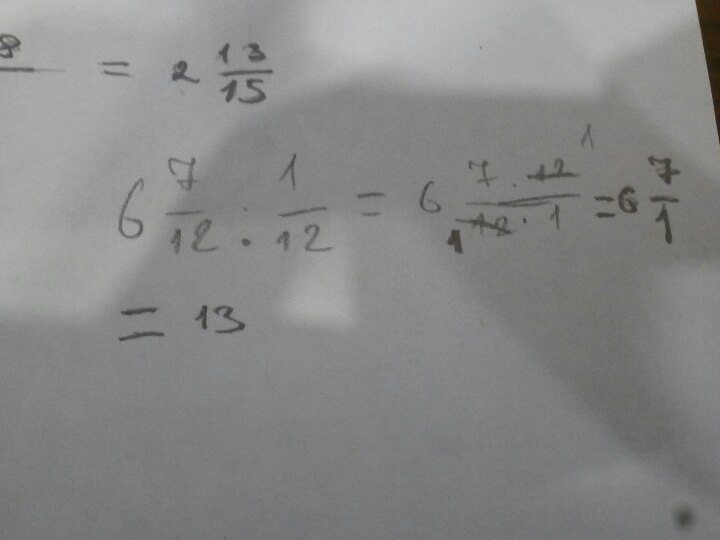 8/ = 2 13/15
6 7/12 : 1/12 = 6 7·12 1/1 12·1 = 6 7/1
= 13